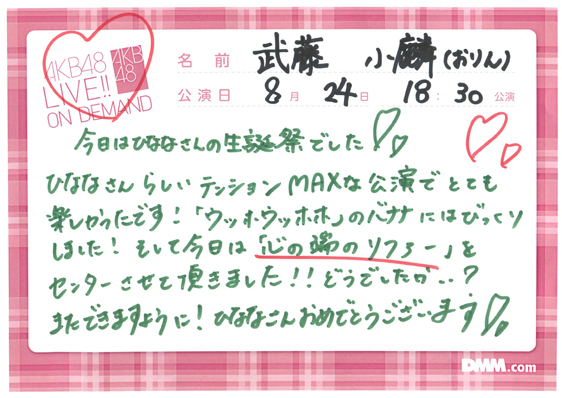 AKB48
LIVE!!
ON DEMAND
AKB
48
名前 武藤 小麟(おりん)
公演日 8月 24日 18:30 公演
今日はひななさんの生誕祭でした♡♡
ひななさんらしいテンションMAXな公演でとても
楽しかったです!「ウッホウッホホ」のバナナにはびっくり
しました!そして今日は「心の端のソファー」を
センターさせて頂きました!!どうでしたか..?
またできますように!ひななさんおめでとうございます♡♡
DMM.com